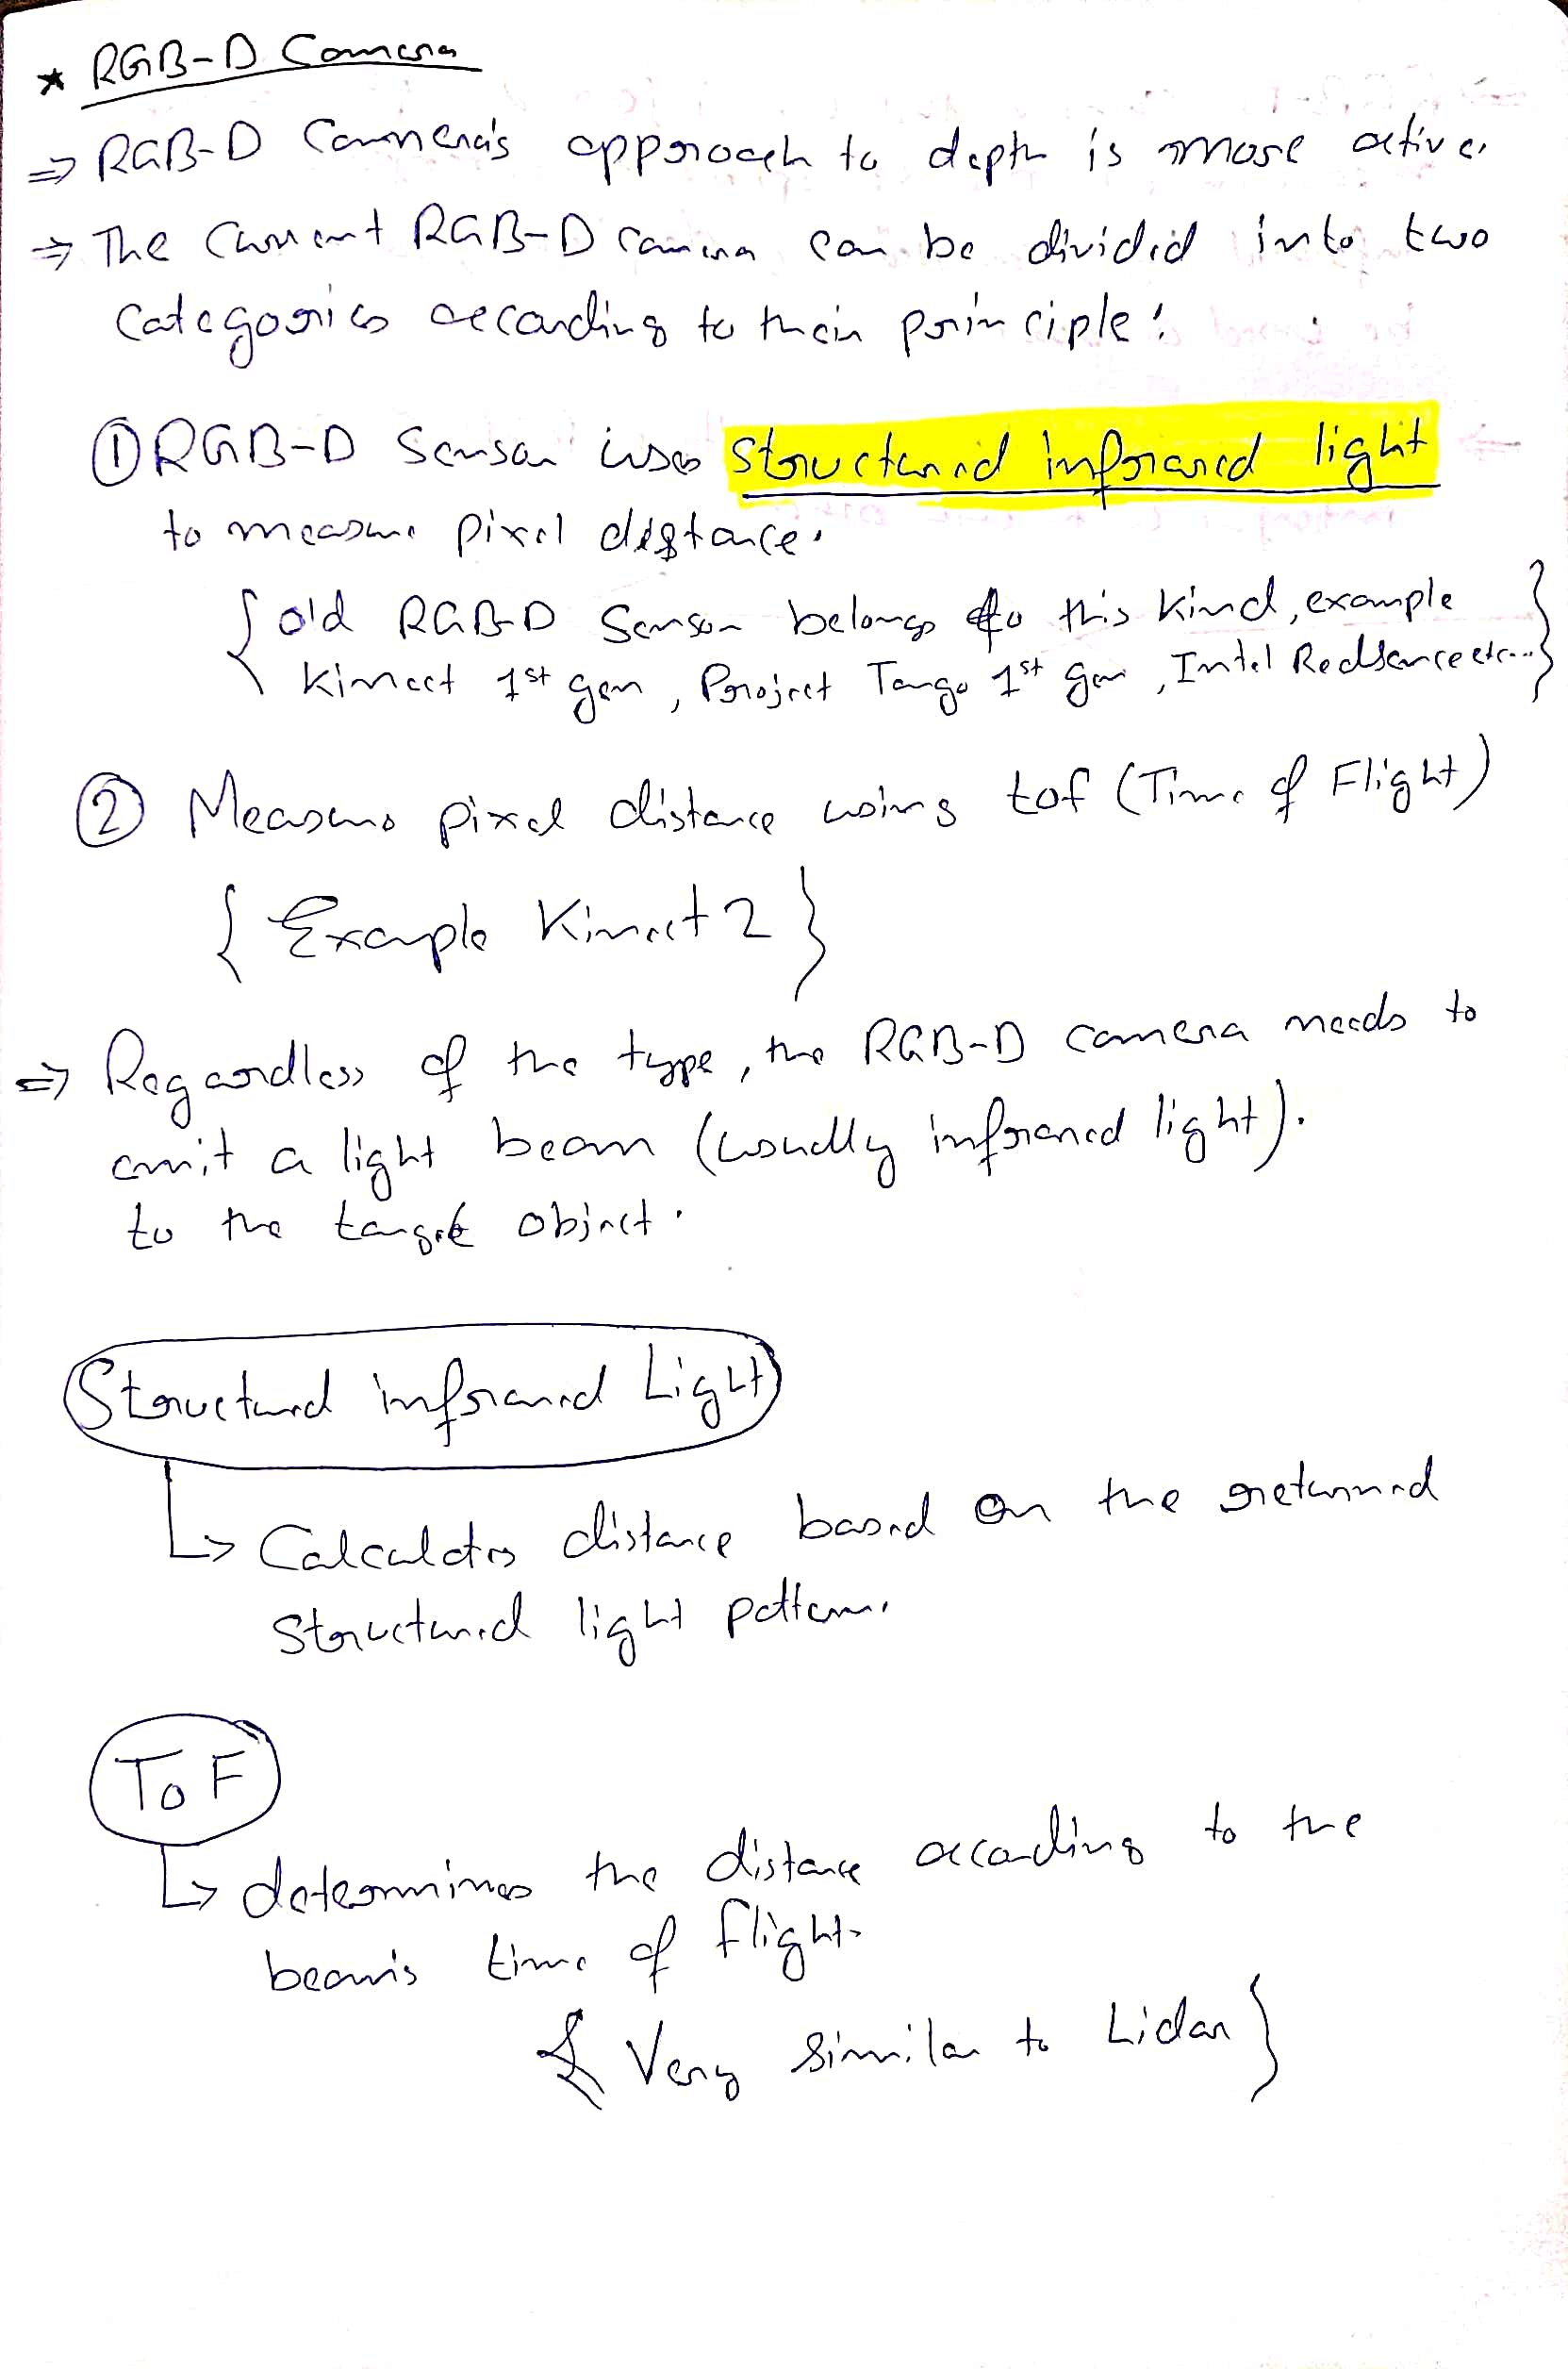 * RGB-D Camera
⇒ RGB-D Camera's approach to depth is more active.
⇒ The Current RGB-D camera can be divided into two
Categories according to their principle:
① RGB-D Sensor uses structured infrared light
to measure pixel distance.
{ old RGB-D Sensor belongs to this kind, example
Kinect 1st gen, Project Tango 1st gen, Intel RealSense etc... }
② Measures pixel distance using tof (Time of Flight)
{ Example Kinect 2 }
⇒ Regardless of the type, the RGB-D camera needs to
emit a light beam (usually infrared light).
to the target object.
Structured infrared Light
↳ Calculates distance based on the returned
Structured light pattern.
ToF
↳ determines the distance according to the
beam's time of flight.
{ Very similar to Lidar }